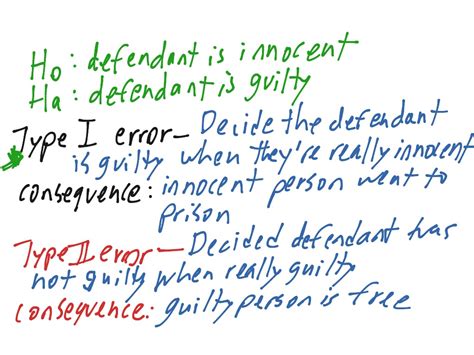 Ho: defendant is innocent
Ha: defendant is guilty
Type I error - Decide the defendant
is guilty when they're really innocent
consequence: innocent person went to
prison
Type II error - Decided defendant was
not guilty when really guilty
consequence: guilty person is free